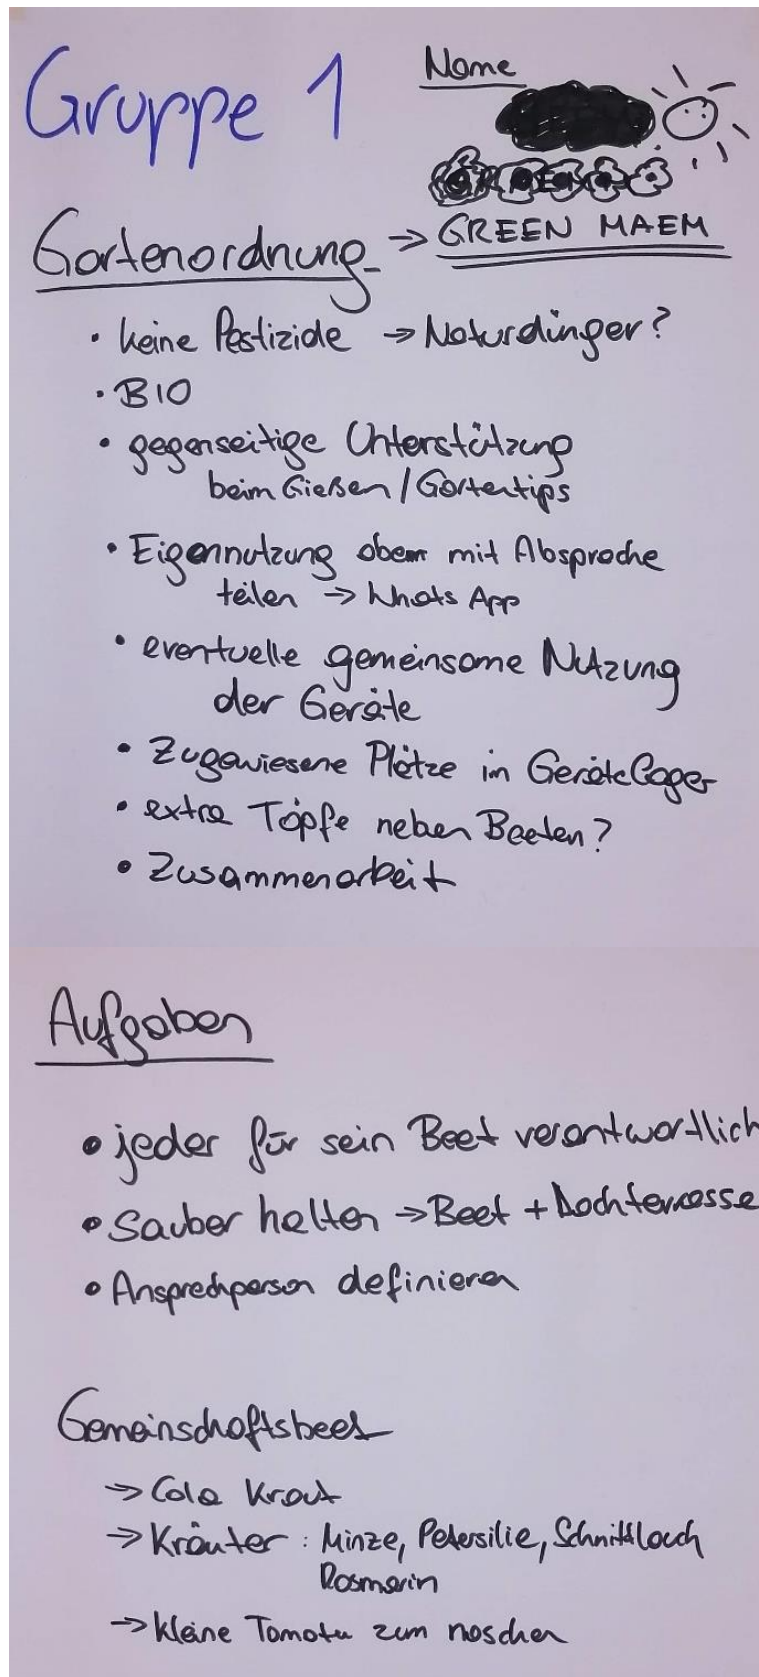 Gruppe 1
Name
Gartenordnung → GREEN MAEM
• keine Pestizide → Naturdünger?
• BIO
• gegenseitige Unterstützung
beim Gießen / Gartentips
• Eigennutzung oben mit Absprache
teilen → Whats App
• eventuelle gemeinsame Nutzung
der Geräte
• Zugewiesene Plätze im Gerätelager
• extra Töpfe neben Beeten?
• Zusammenarbeit
Aufgaben
• jeder für sein Beet verantwortlich
• Sauber halten → Beet + Dachterrasse
• Ansprechperson definieren
Gemeinschaftsbeet
→ Cola Kraut
→ Kräuter : Minze, Petersilie, Schnittlauch
Rosmarin
→ kleine Tomaten zum naschen